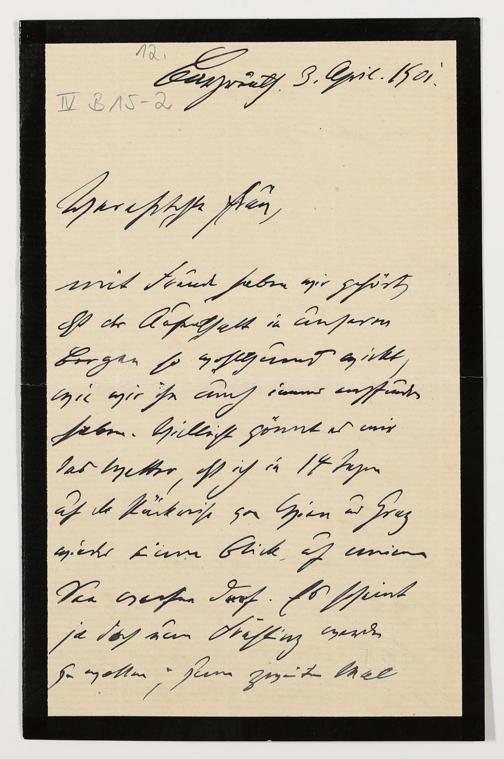 12.
IV B 15-2
3. April. 1901.
Verehrteste Frau,
mit Freude haben wir gehört,
daß der Aufenthalt in unseren
Bergen so wohlthuend wirkt,
wie wir ihn auch immer empfunden
haben. Vielleicht gönnt es mir
das Wetter, daß ich in 14 Tagen
auf der Rückreise von Wien und Graz
wieder einen Blick auf meinen
werfen darf. Es scheint
ja doch nun Frühling werden
zu wollen; zum zweiten Mal